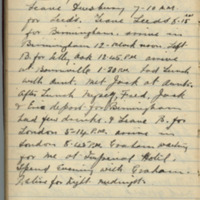 Leave Dewsbury 7-10 A.M.
for Leeds. Leave Leeds 8-15 AM
for Birmingham. arrive in
Birmingham 12-o'clock noon. Left
B. for Selly Oak 12.45 arrive
at Bournville 1.20 PM. Had lunch
with Aunt. Met Jack at Aunts.
After Lunch Myself, Fred, Jack
& Eva depart for Birmingham
had few drinks & Leave B. for
London 5-14 P.M. arrive in
London 8-45 PM. Graham waiting
for me at Imperial Hotel.
Spend Evening with Graham.
Retire for night midnight.